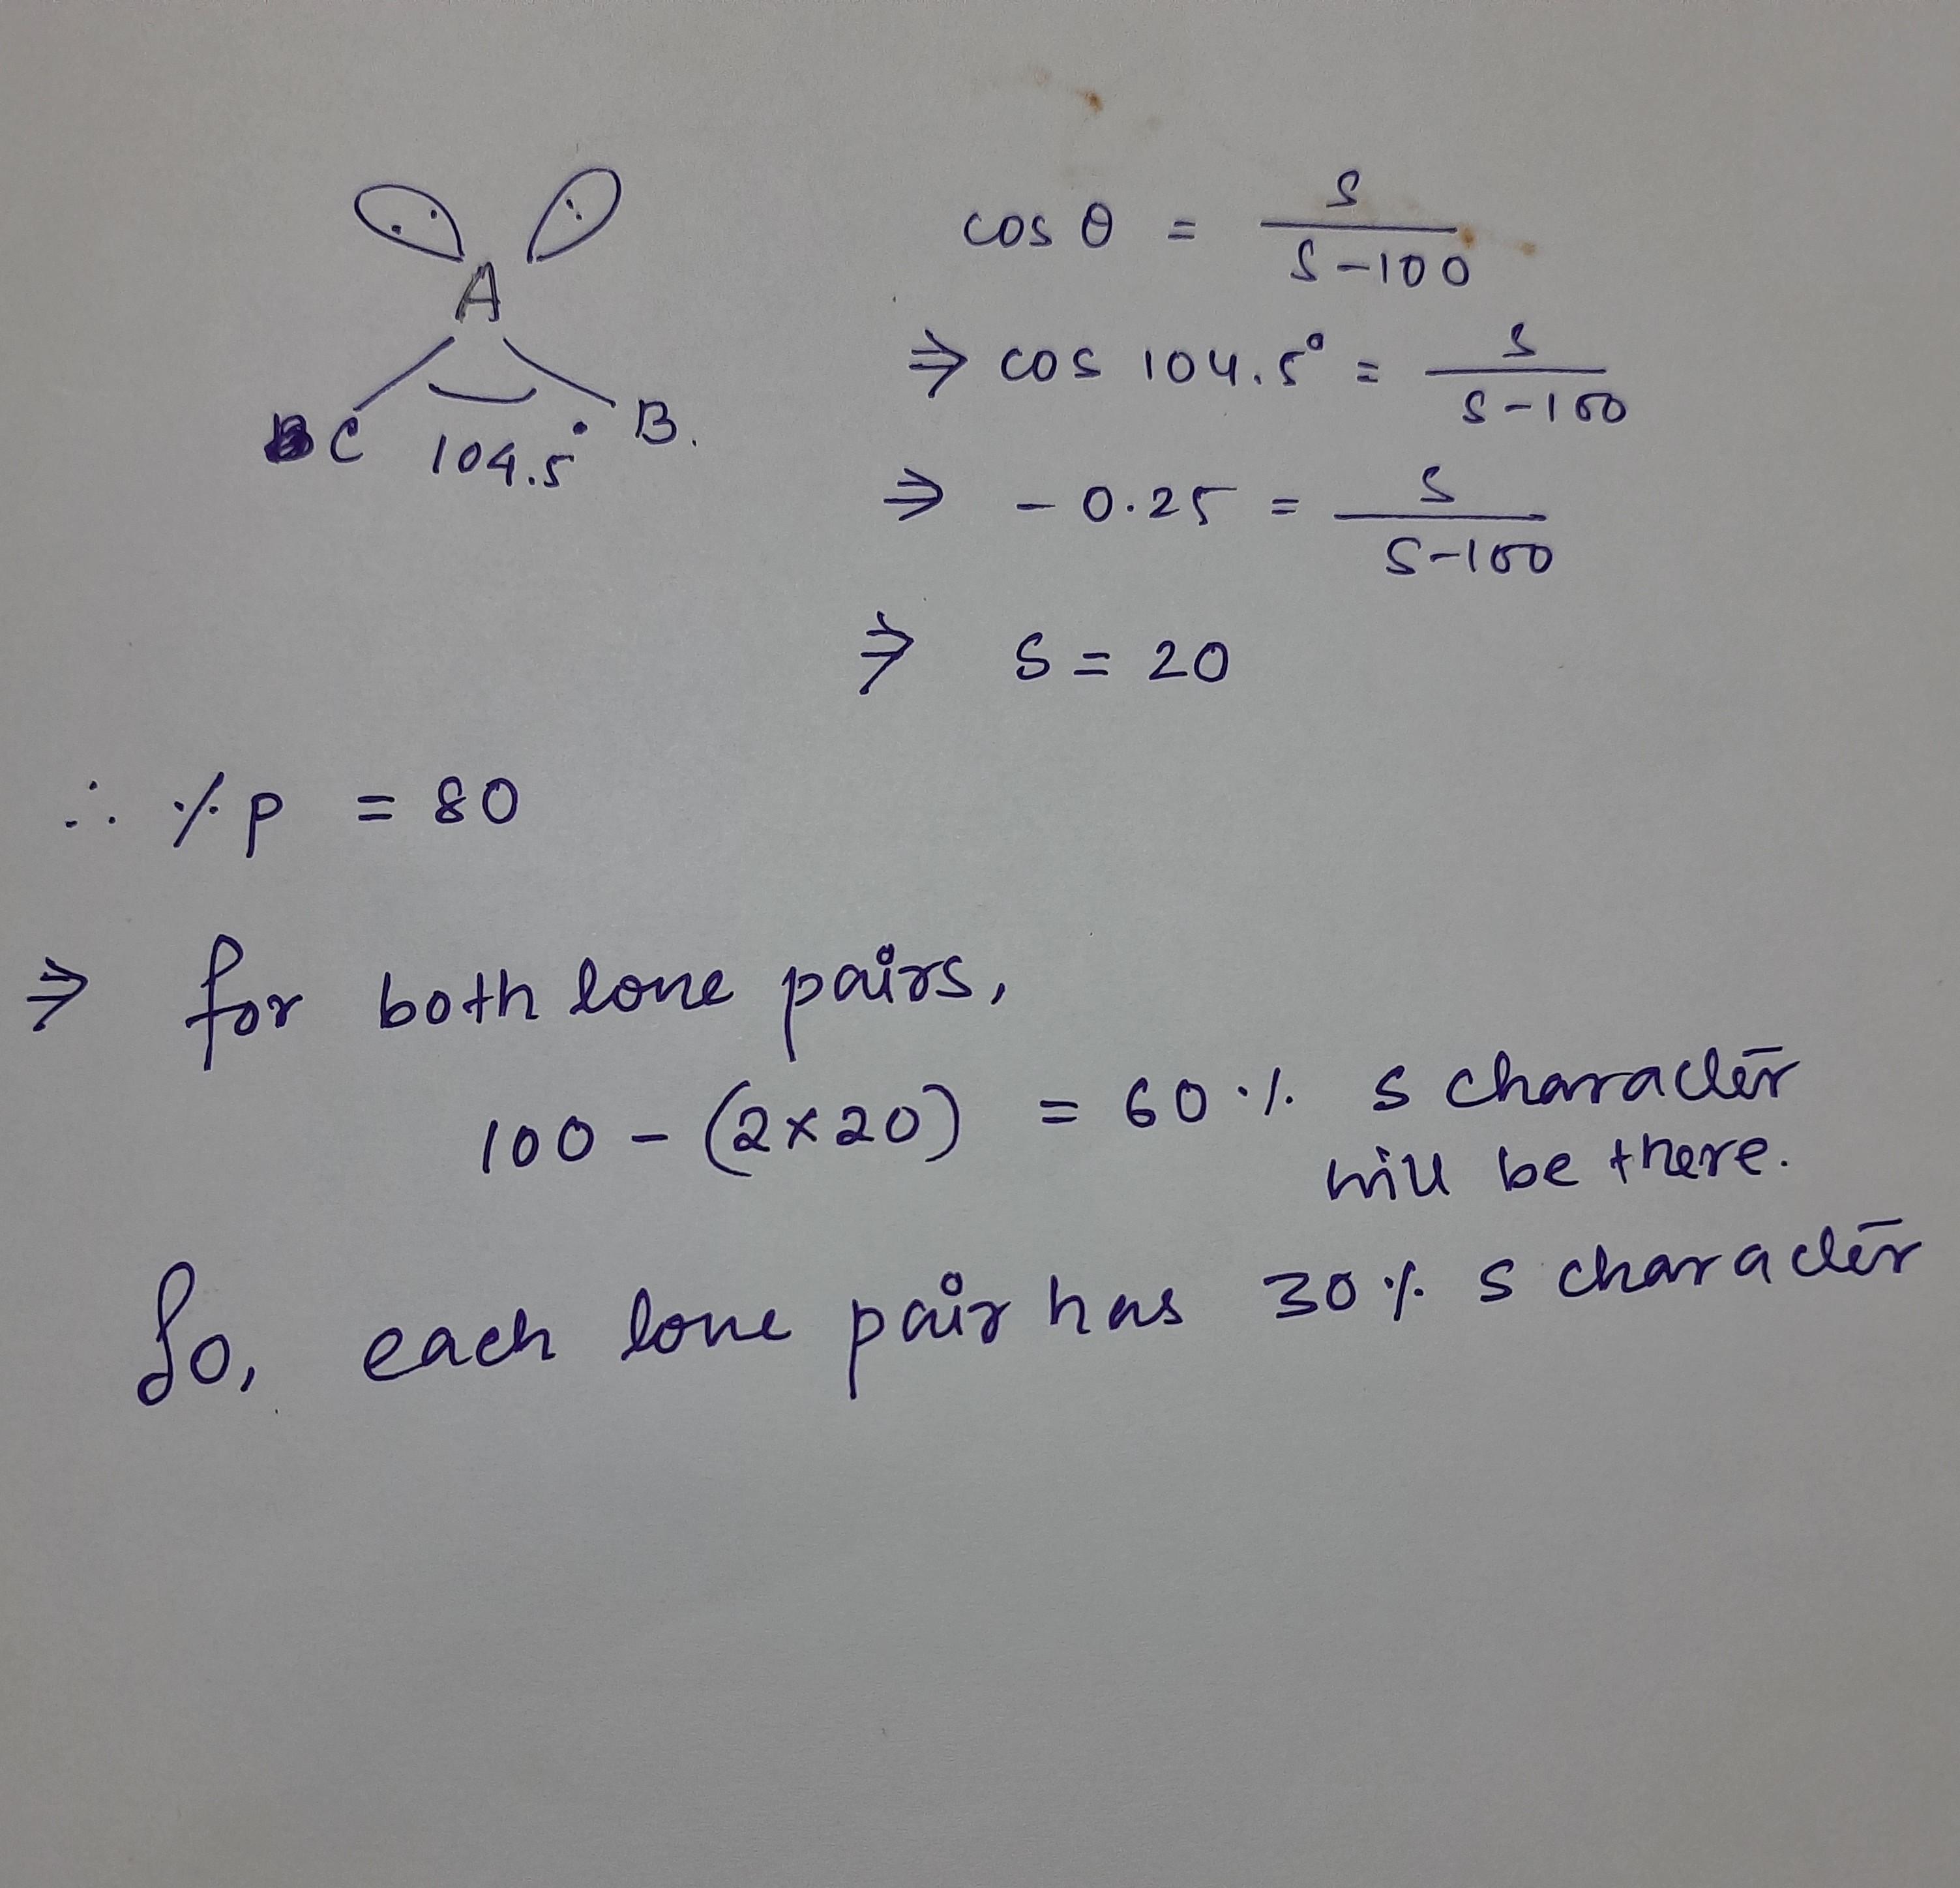 A
C B.
104.5°
cos θ = s / s-100
⇒ cos 104.5° = s / s-100
⇒ -0.25 = s / s-100
⇒ s = 20
∴ % p = 80
⇒ for both lone pairs,
100 - (2×20) = 60 % s character
will be there.
So, each lone pair has 30 % s character